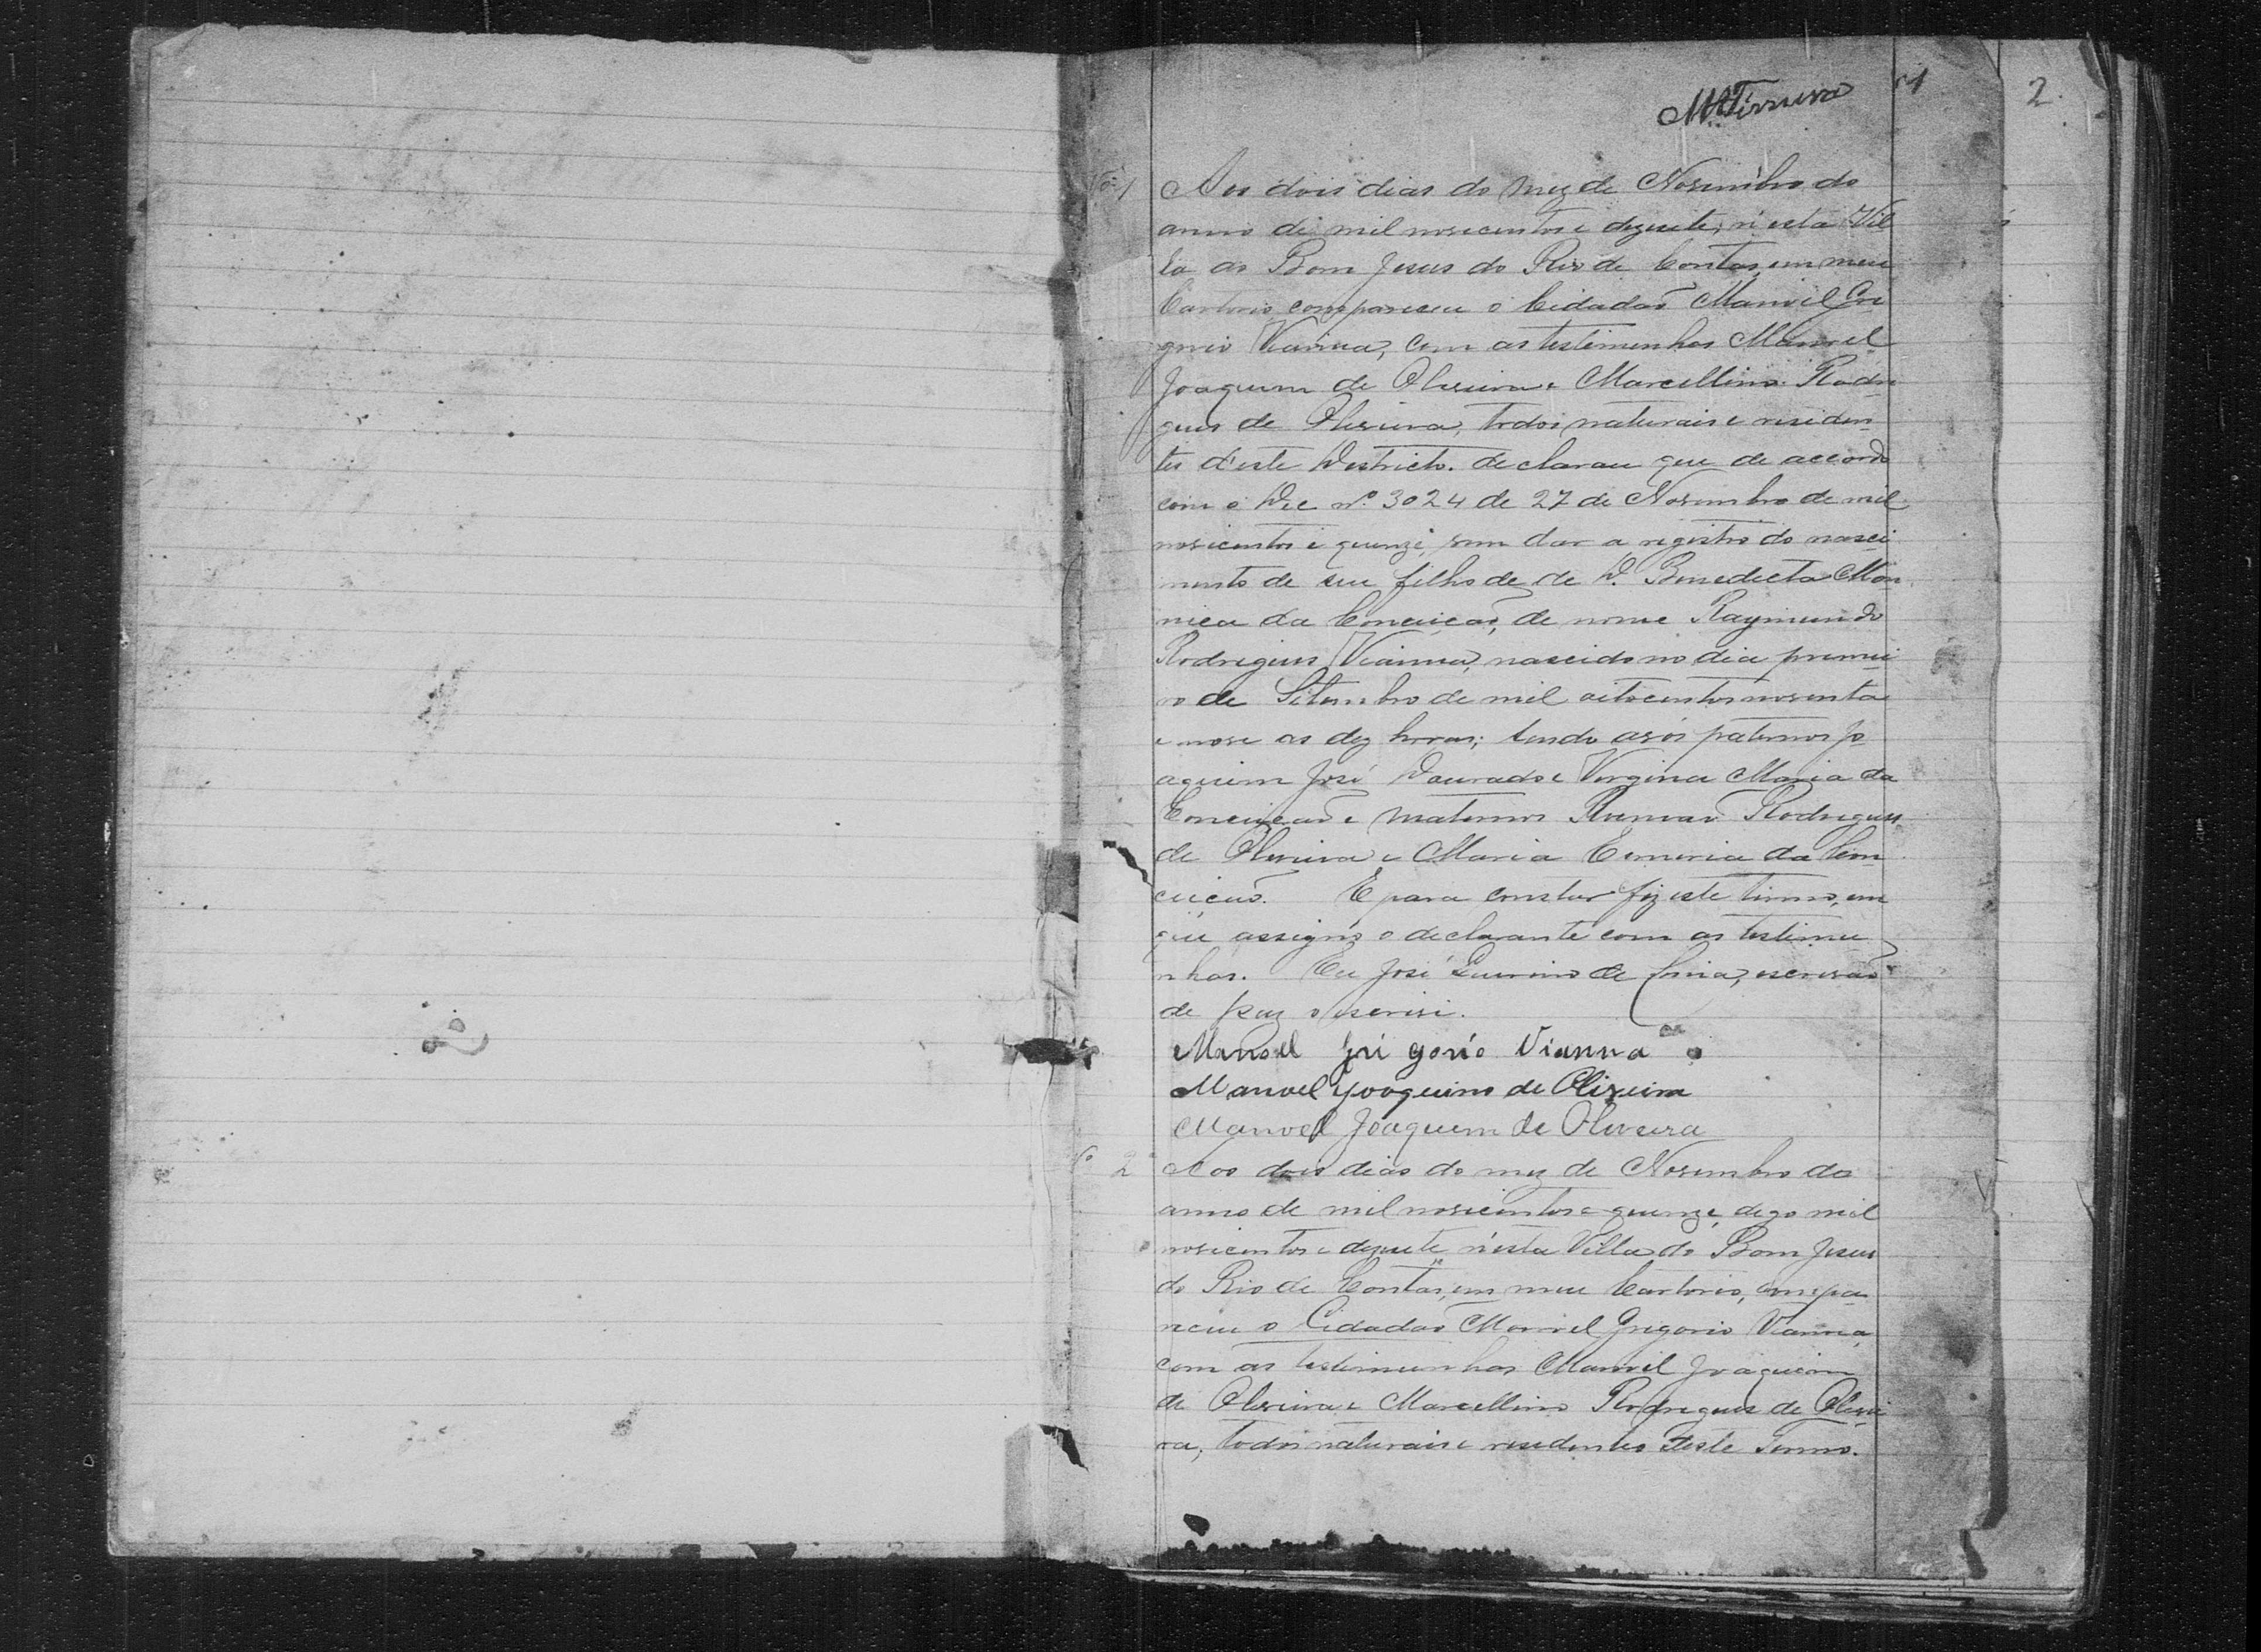 MFerreira 1 2
Nº 1 Aos dois dias do mez de Novembro do
anno de mil novecentos e dezesete, n'esta Vil
la do Bom Jesus do Rio de Contas, em meu
Cartorio compareceu o Cidadão Manoel Gre
gorio Vianna, com as testimunhas Manoel
Joaquim de Oliveira e Marcellino Rodri
gues de Oliveira, todos naturais e residen
tes d'este Districto. declarou que de accordo
com o Dec nº 3024 de 27 de Novembro de mil
novecentos e quinze, vem dar a registro do nasci
mento de seu filho de de D. Benedicta Mon
nica da Conceição, de nome Raymundo
Rodrigues Vianna, nascido no dia primei
ro de Setembro de mil oitocentos noventa
e nove as dez horas; sendo avós paternos Jo
aquim José Dourado e Virgina Maria da
Conceição e maternos Romão Rodrigues
de Oliveira e Maria Emeria da Con
ceição. E para constar fiz este termo, em
que assigno o declarante com as testimu
nhas. Eu José de escrivão
de paz o escrivi.
Manoel Gri gorio Vianna
Manoel Joaquino de Oliveira
Manoel Joaquim de Oliveira
Nº 2 Aos dois dias do mez de Novembro do
anno de mil novecentos e quinze, digo mil
novecentos e dezesete n'esta Villa do Bom Jesus
do Rio de Contas, em meu Cartorio, compa
receu o Cidadão Manoel Gregorio Vianna
com as testimunhas Manoel Joaquim
de Oliveira e Marcellino Rodrigues de Olivei
ra, todos naturais e residentes deste Termo.